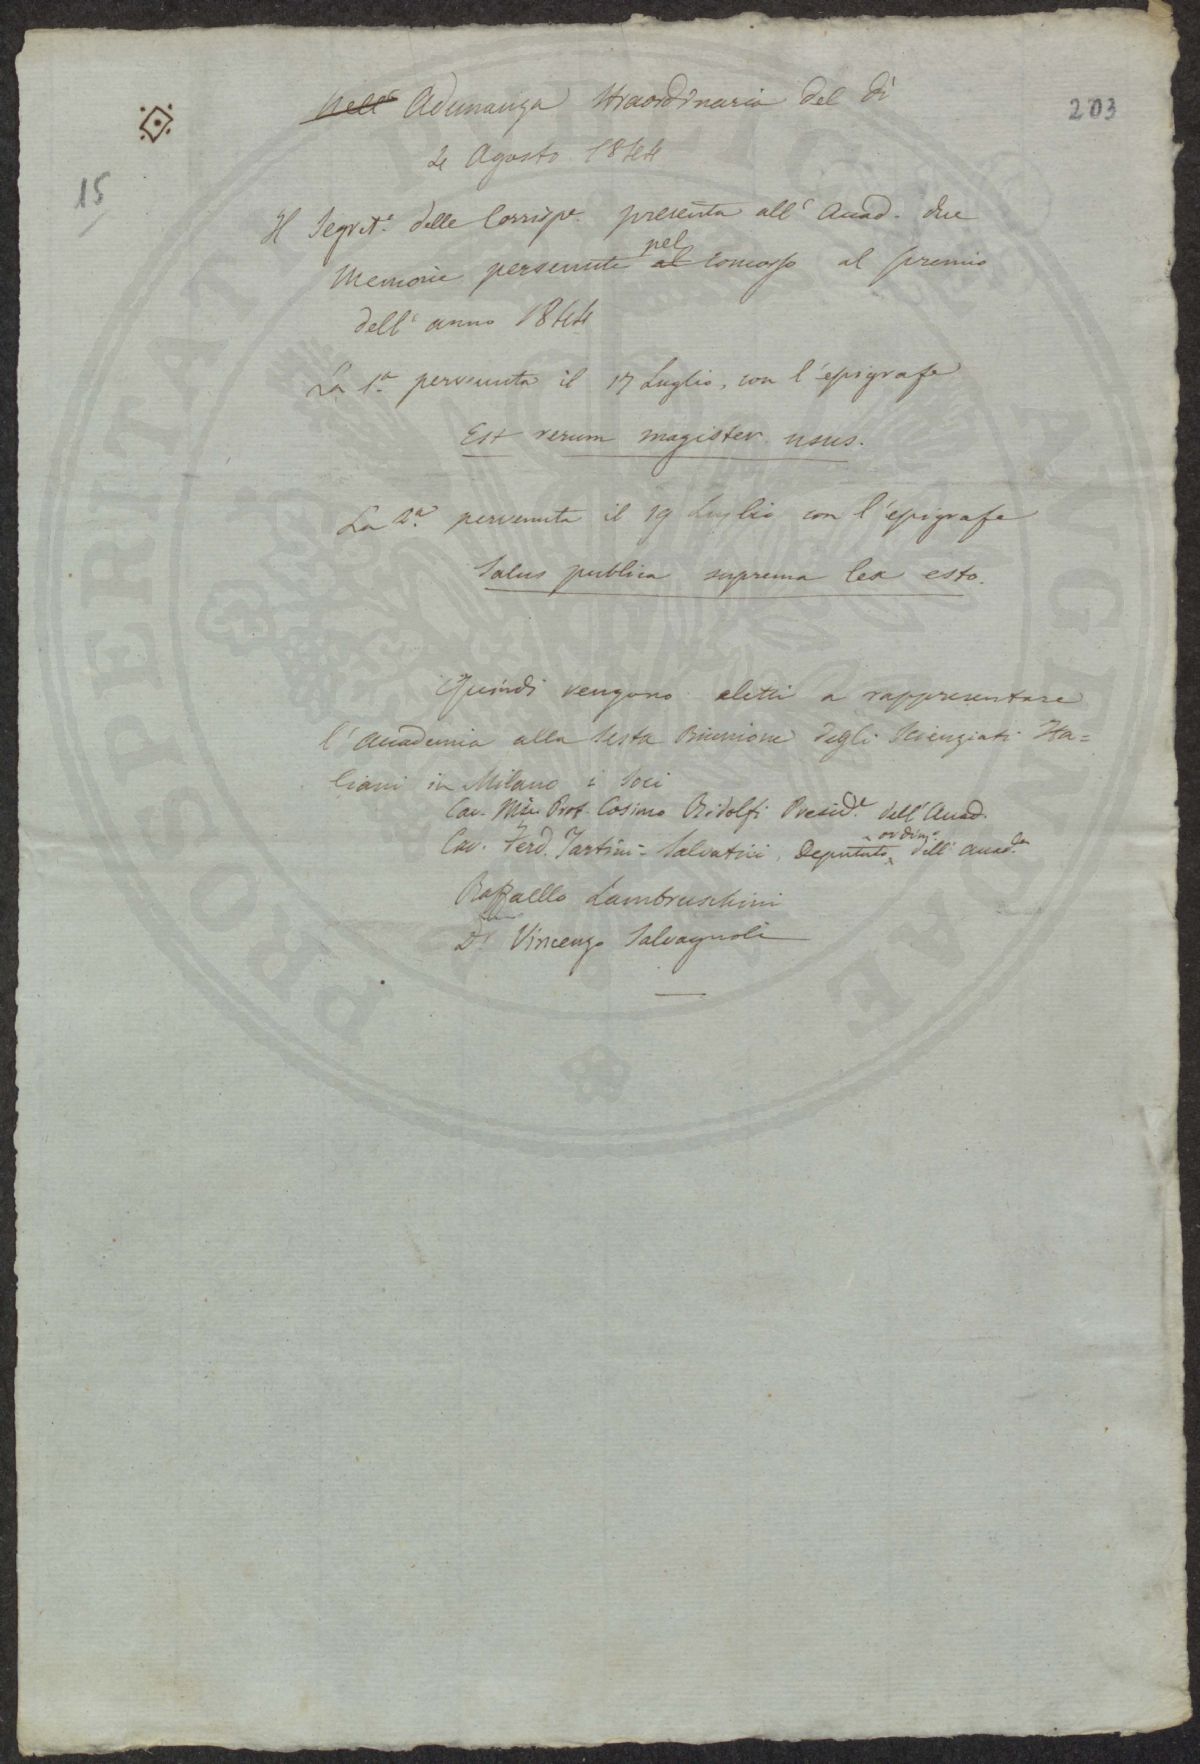 203
15
Nell' Adunanza straordinaria del dì
4 Agosto 1844
Il Segret.e delle Corrispe. presenta all' Accad. due
Memorie pervenute al pel concorso al premio
dell' anno 1844
La 1a. pervenuta il 17 Luglio, con l'epigrafe
Est rerum magister usus.
La 2a. pervenuta il 19 Luglio con l'epigrafe
Salus publica suprema lex esto.
Quindi vengono eletti a rappresentare
l'Accademia alla Sesta Riunione degli Scienziati Ita=
liani in Milano i Soci
Cav. Prof. Cosimo Ridolfi Presid.e dell' Accad.
Cav. Ferd. Tartini-Salvatici, Deputato ordin.o dell' Accad.
Raffaello Lambruschini
D. Vincenzo Salvagnoli
PROSPERITATI PUBLICAE AUGENDAE